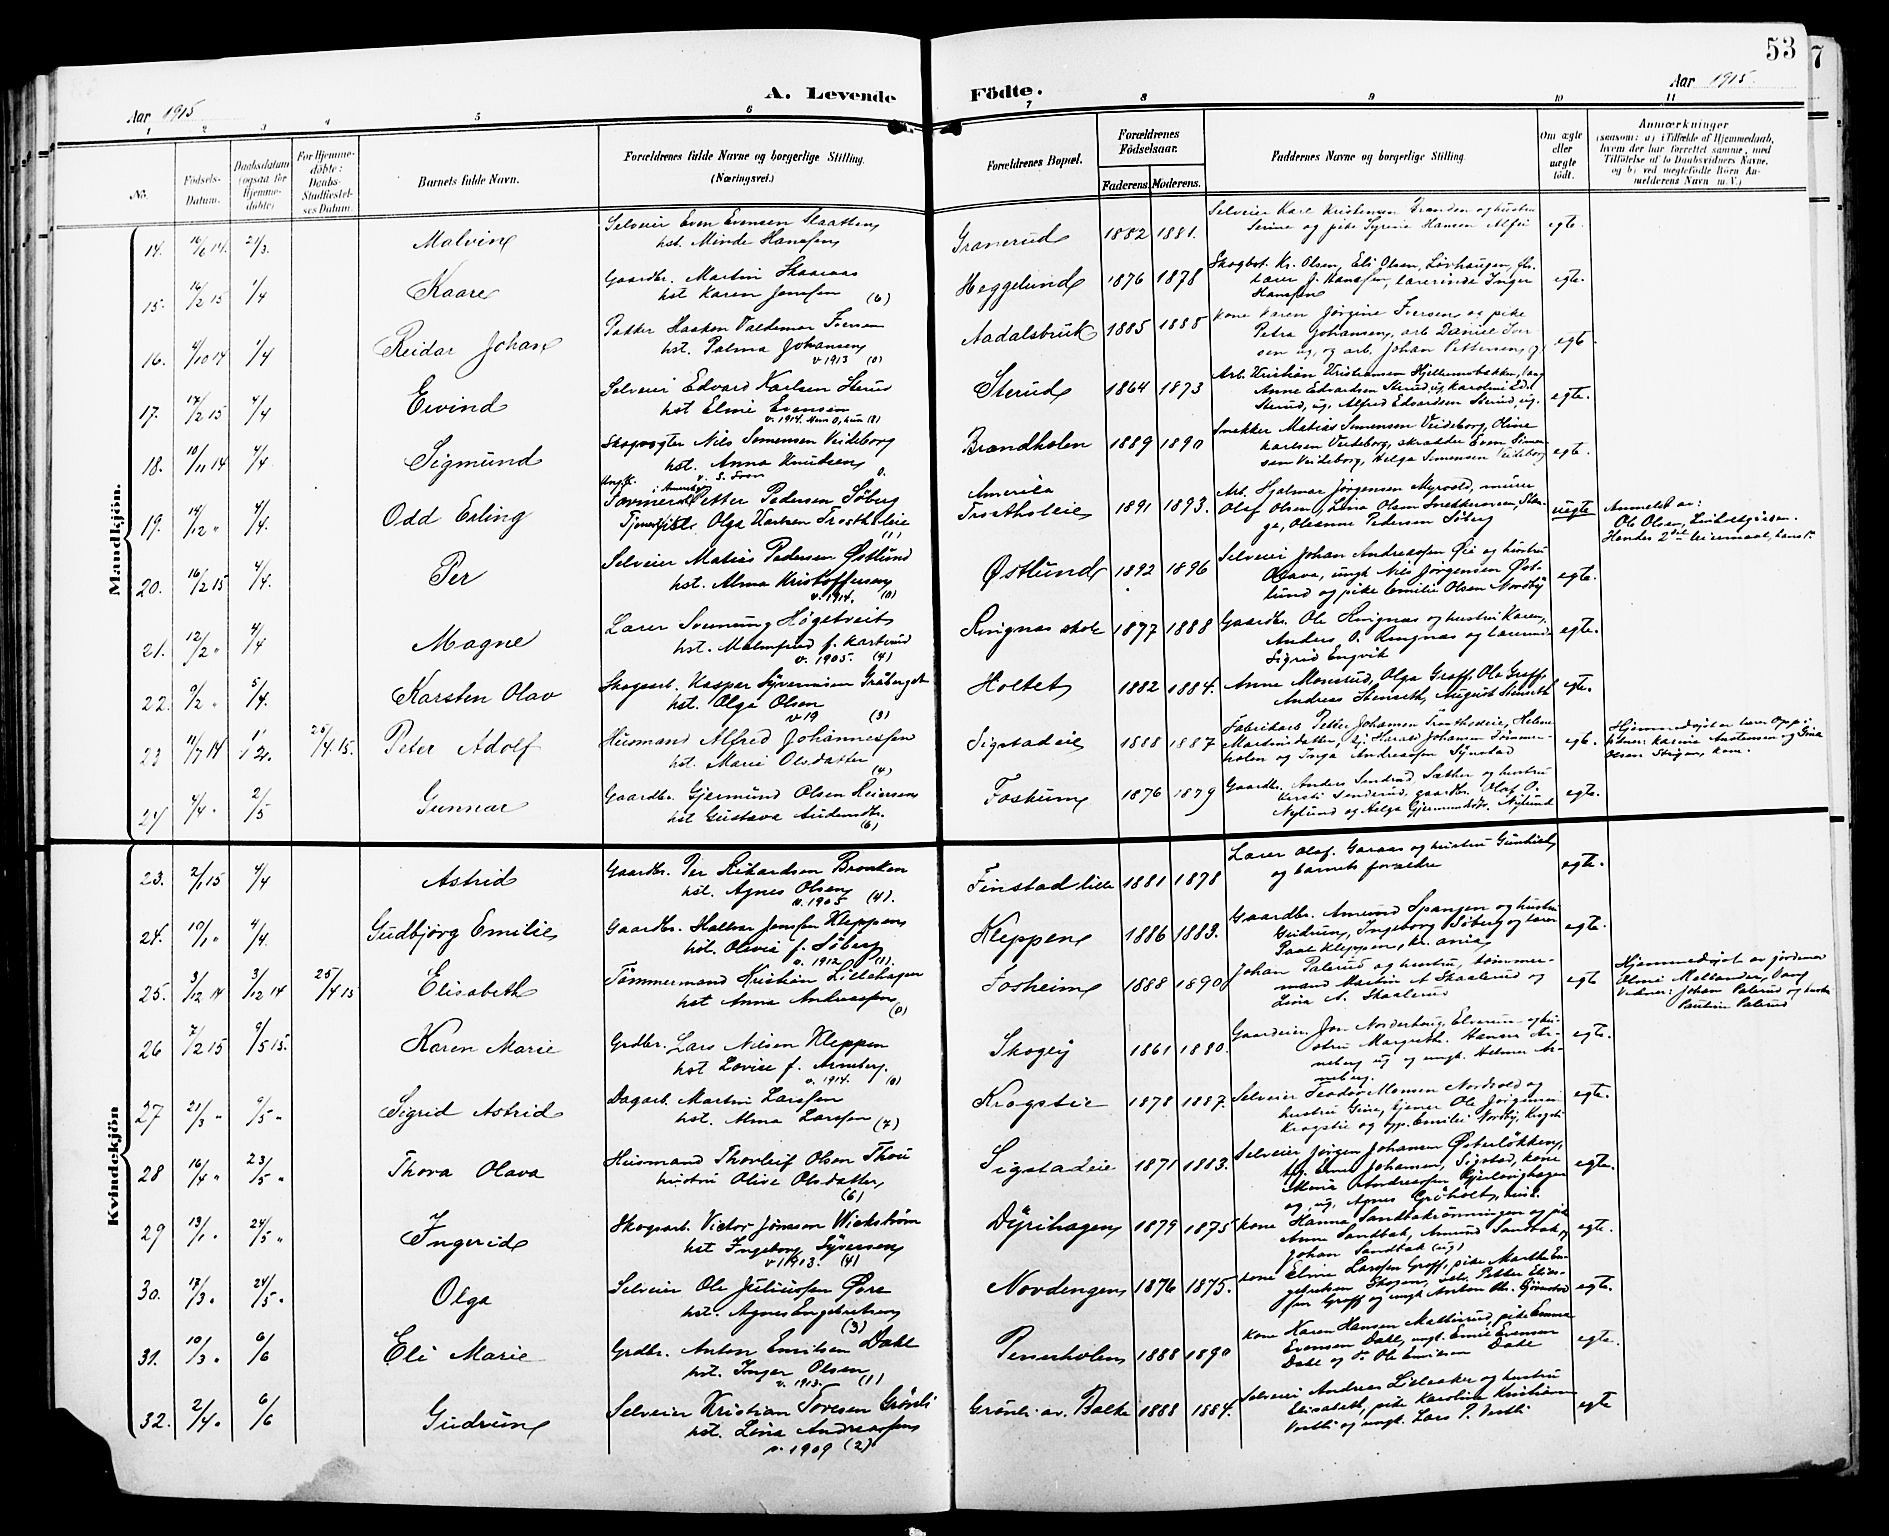 53
7
A. Levende Födte.
Aar 1915
Aar 1915.
1 2 3 4 5 6 7 8 9 10 11
No.
Födsels-Datum.
Daabsdatum (ogsaa for Hjemme-döbte)
For Hjemme-döbte: Daabs-Stadfæstel-ses Datum.
Barnets fulde Navn.
Forældrenes fulde Navne og borgerlige Stilling. (Næringsvei.)
Forældrenes Bopæl.
Forældrenes Födselsaar.
Faderens. Moderens.
Faddernes Navne og borgerlige Stilling.
Om ægte eller uægte födt.
Anmærkninger
(saasom: a) i Tilfælde af Hjemmedaab, hvem der har forrettet samme, med Tilföielse af to Daabsvidners Navne, og b) ved uægtefödte Börn An-melderens Navn m. V.)
Mandkjön.
14. 16/6 14. 21/3. Malvin
Selveier Even Evensen Slaatten
hst. Minda Hansen
Granerud 1882 1881.
Selveier Karl Kristensen Branden og hustru
Serine og pike Syrine Hansen egte.
15. 14/2 15 1/4 Kaare
Gaardbr. Martin Skaaraas
hst Karen Jensen (6)
Heggelund 1876 1878
Skogbst. Kr. Olsen, Eli Olsen, Løvhaugen,
lærer J. Hansen, lærerinde Inger
Hansen egte.
16. 4/10 14 1/4 Reidar Johan
Pakker Haaken Valdemar Iversen
hst. Palma Johansen
v 1913 (0)
Aadalsbruk 1885 1888
Kone Karen Jørgine Iversen og pike
Petra Johansen, arb. Daniel Iver
sen ug, og arb. Johan Pettersen, egt
17. 14/2 15 4/4 Eivind
Selveier Edvard Karlsen Sterud
hst Elmi Evensen
v. 1914.
Sterud 1864 1873
Arb. Kristian Kristiansen Hjellumsbakken,
Anne Edvardsen Sterud, ug, Karoline Ed.
Sterud, ug. Alfred Edvardsen Sterud, ug. egte.
18. 10/11 14 4/4 Sigmund
Skogvogter Nils Simensen Veideborg
hst. Anna Knutsen
v. S. Fron 0.
Brændholen 1889 1890
Snekker Matias Simensen Veideborg, Oline
Karlsen Veideborg, skrædder Even Simen
sen Veideborg, Helga Simensen Veideborg egte.
19. 14/12 " 4/4. Odd Erling
Ungk. i Amerika
Tømmerm. Petter Pedersen Søberg
Tjenestpike Olga Karlsen Trostholeie
(1)
Amerika
Trostholeie 1891 1893.
Arb. Hjalmar Jørgensen Myrvold, murer
Olaf Olsen, Lina Olsen Snekkerovsen, Stan-
ge, Oleanne Pedersen Søberg uegte
Anmeldt av:
Ole Olsen,
20. 16/2 15 4/4. Per
Selveier Matias Pedersen Østlund
hst. Alma Kristoffersen
v. 1914. (0)
Østlund 1892 1896
Selveier Johan Andreassen Øie og hustru
Olava, ungk Nils Jørgensen Øst-
lund og pike Emilie Olsen Nordby egte.
21. 12/2 " 4/4 Magne
Lærer Sveinung Høgetveit
hst. Malmfrid f. Kartveid
v. 1905. (4)
Ringnes skole 1877 1888
Gaardbr. Ole Ringnæs og hustru Karen,
Anders O. Ringnæs og lærerinde
Sigrid Engvik egte.
22. 9/2 " 5/4. Karsten Olav
Skogsarb. Kasper Syversen Graaberget
hst. Olga Olsen
v 19 (3)
Holtet 1882 1884.
Anne Monsrud, Olga Groff, Ole Groff,
Andreas Stenseth, August Stenseth egte.
23 11/7 14 25/4.15. Peter Adolf
Husmand Alfred Johannessen
hst. Marie Olsdatter (4)
Sigstadeie 1888 1887
Fabrikarb. Petter Johansen Trosthseie, Helene
Martinusdatter, Harald Johansen Tømmer-
holen og Inga Andreassen Synstad egt.
Hjemmedøpt av lærer
vidner: Karine Andersen og Gina
Olsen Stigen, kone.
24 4/4 " 2/5 Gunnar
Gaardbr. Gjermund Olsen Reiersen
hst Gustava Audensdtr.
(6)
Foskum 1876 1879
Gaardbr. Anders Senderud, Sæther og hustru
Kersti Senderud, gaardbr. Olaf O.
Nylund og Helga Gjermundsdtr. Nylund egte.
Kvindekjön
23. 2/1 15 4/4 Astrid
Gaardbr. Per Rikardsen Bronken
hst. Agnes Olsen
v. 1905 (4).
Finstad lille 1881 1878
Lærer Olaf Garaas og hustru Gunhild,
og barnets forældre egte.
24. 10/1 " 4/4. Gudbjørg Emilie
Gaardbr. Halvar Jensen Kleppen
hst. Olivie f. Søberg
v. 1912 (1).
Kleppen 1886 1883.
Gaardbr. Amund Spangen og hustru
Gudrun, Ingeborg Søberg og lærer
Paal Kleppen, Kr.ania egte.
25. 3/12 14 3/12 14 25/4 15 Elisabeth
Tømmermand Kristian Lillehagen
hst Anna Andreassen
(0)
Fosheim 1888 1890
Johan Palerud og hustru, tømmer-
mand Martin A Skaalerud og
Lina A. Skaalerud egte
Hjemmedøpt av jordmor
Olmi Mellander, Vang
Vidner: Johan Palerud og hustru
Pauline Palerud
26 7/2 15 9/5 15. Karen Marie
Grdbr. Lars Nilsen Kleppen
hst Lovise f. Arneberg.
v. 1914. (0)
Skogly 1861 1880.
Gaardeier Jon Norderhaug, Elverum og hu-
stru Margrethe. Hanna Ar-
neberg ug og ungk. Helmer Ar-
neberg. egte.
27 21/3 " 9/5 " Sigrid Astrid
Dagarb. Martin Larssen
hst. Alma Larssen (4)
Krogstie 1878 1887.
Selveier Teodor Monsen Nordvold og
hustru Gina, tjener Ole Jørgensen
Krogstie og pp. Emilie Nordby, Krogsti egte.
28 16/4 " 23/5 " Thora Olava
Husmand Thorleif Olsen Thou
hustru Olive Olsdatter
(6)
Sigstadeie 1871 1883.
Selveier Jørgen Johansen Østerløkken,
tj. Emma Johansen, Sigstad, kone
Marie Andreassen Gjerlaughagen
og ug. Agnes Grøholt, egte.
29 13/1 " 24/5 " Ingerid
Skogsarb. Victor Jonsson Wickstrøm
hst Ingeborg Syversen
v 1913. (4)
Dyrihagen 1879 1875
Kone Hanna Sandbakrønningen og pik
Anne Sandbak, Amund Sandbak og
Johan Sandbak (ug) egte.
30. 17/3 " 24/5 " Olga
Selveier Ole Juliussen Øvre
hst. Agnes Engebretsen
(3)
Nordengen 1876 1875.
Kone Eline Larssen Groff, pike Marthe En-
gebretsen Skogen, selv. Petter Elias-
sen Groff og ungk Anton egte.
31. 10/3 " 6/6 Eli Marie
Grdbr. Anton Emilsen Dahl
hst. Inger Olsen
v. 1913. (1)
Penerholen 1888 1890
Kone Karen Hansen Malterud, pike Emma
Evensen Dahl, ungk. Emil Evensen
Dahl og Ole Emilsen Dahl egte.
32. 2/4 " 6/6 Gudrun
Selveier Kristian Toresen Grønli
hst. Lina Andreassen
v. 1909 (2)
Grønli av. Bakke 1888 1884.
Selveier Andreas Lilleaker og hustru
Elisabeth, pike Karoline Kristiansen
Vestli og ungk. Lars P. Vestli egte